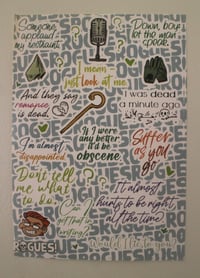 Someone applaud my restraint.
Down, boy, let the man speak.
I mean just look at me.
And they say romance is dead.
I was dead a minute ago
If I were any better it'd be obscene
I'm almost disappointed.
Suffer as you go
Don't tell me what to do.
Can I get that in writing?
It almost hurts to be right all the time
ROGUES
Would I lie to you?